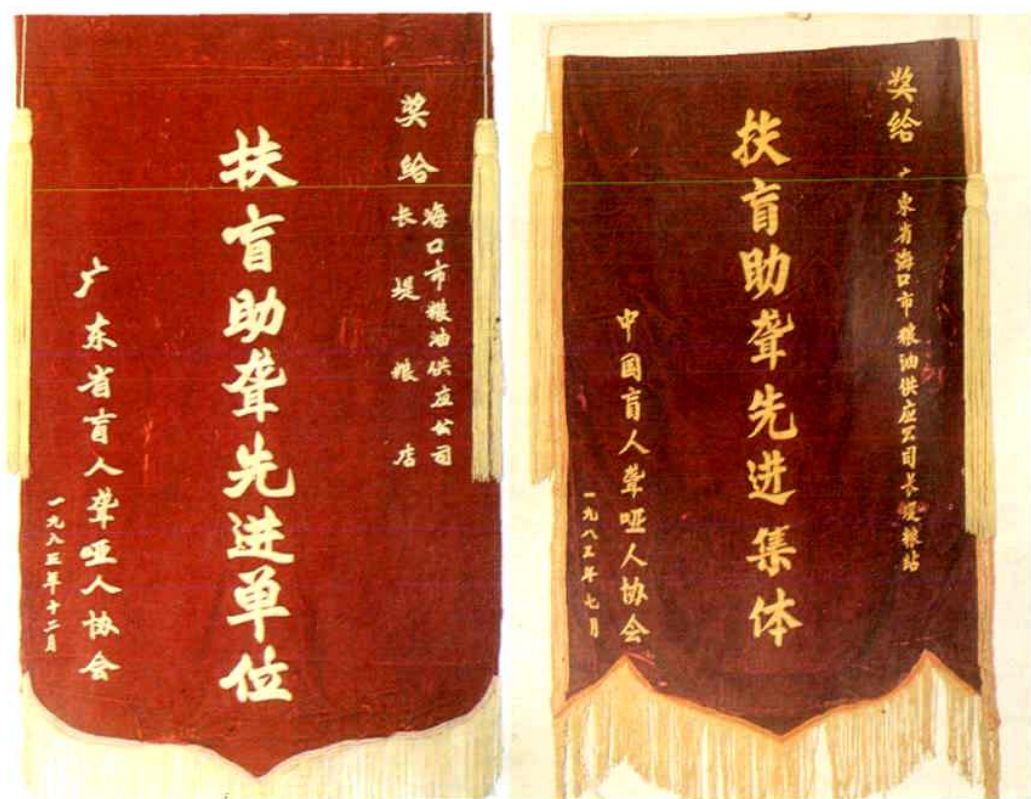 奖给
海口市粮油供应公司
长堤粮店
扶盲助聋先进单位
广东省盲人聋哑人协会
一九八三年十二月
奖给 广东省海口市粮油供应公司长堤粮站
扶盲助聋先进集体
中国盲人聋哑人协会
一九八三年七月